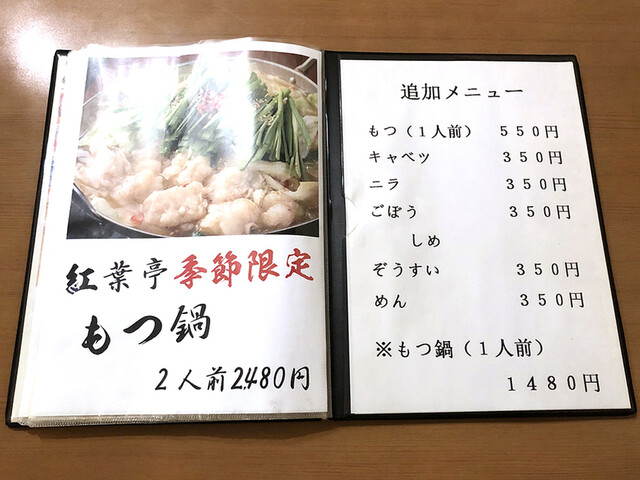 紅葉亭季節限定
もつ鍋
2人前2480円
追加メニュー
もつ（１人前） ５５０円
キャベツ ３５０円
ニラ ３５０円
ごぼう ３５０円
しめ
ぞうすい ３５０円
めん ３５０円
※もつ鍋（１人前）
１４８０円